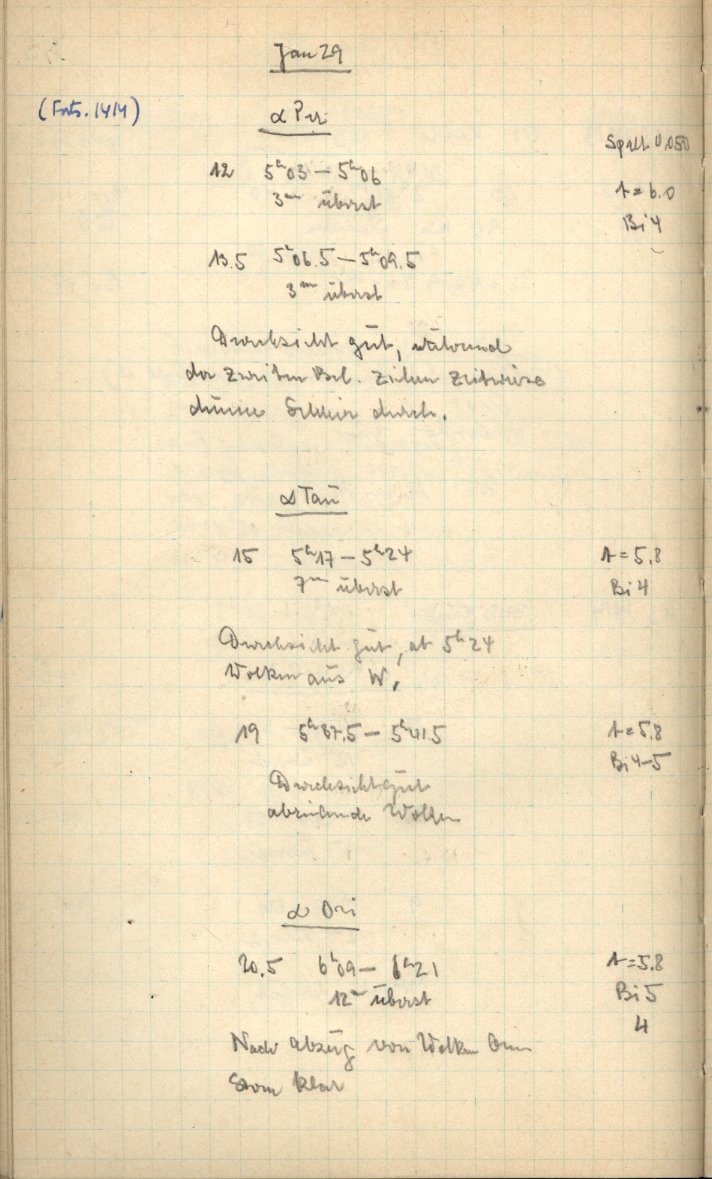 Jan 29
(Forts. 1414)
α Per
Spalt 0.050
12 5ʰ03 – 5ʰ06
3ᵐ überst
t = 6.0
Bi 4
13.5 5ʰ06.5 – 5ʰ09.5
3ᵐ überst
Durchsicht gut, während
der zweiten Bel. ziehen zeitweise
dünne Schleier durch.
α Tau
15 5ʰ17 – 5ʰ24
t = 5.8
7ᵐ überst
Bi 4
Durchsicht gut, ab 5ʰ24
Wolken aus W.
19 5ʰ37.5 – 5ʰ41.5
t = 5.8
Bi 4–5
Durchsicht gut
abziehende Wolken
α Ori
20.5 6ʰ09 – 6ʰ21
t = 5.8
12ᵐ überst
Bi 5
4
Nach Abzug von Wolken beim
Stern klar